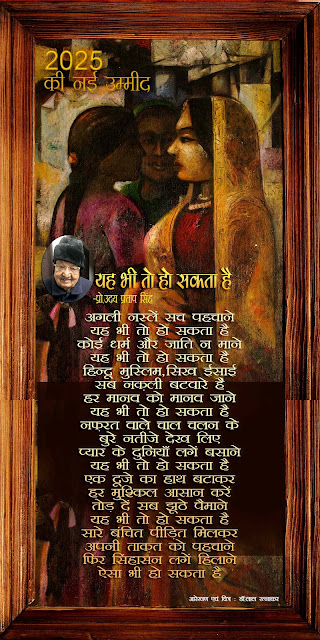 2025
की नई उम्मीद
यह भी तो हो सकता है
-प्रो.उदय प्रताप सिंह
अगली नस्लें सच पहचाने
यह भी तो हो सकता है
कोई धर्म और जाति न माने
यह भी तो हो सकता है
हिन्दू मुस्लिम,सिख ईसाई
सब नकली बटवारे है
हर मानव को मानव जाने
यह भी तो हो सकता है
नफरत वाले चाल चलन के
बुरे नतीजे देख लिए
प्यार के दुनियाँ लगें बसाने
यह भी तो हो सकता है
एक दूजे का हाथ बटाकर
हर मुश्किल आसान करें
तोड़ दें सब झूठे पैमाने
यह भी तो हो सकता है
सारे बंचित पीड़ित मिलकर
अपनी ताकत को पहचाने
फिर सिंहासन लगें हिलाने
ऐसा भी हो सकता है
एवं चित्र : डॉ.लाल रत्नाकर